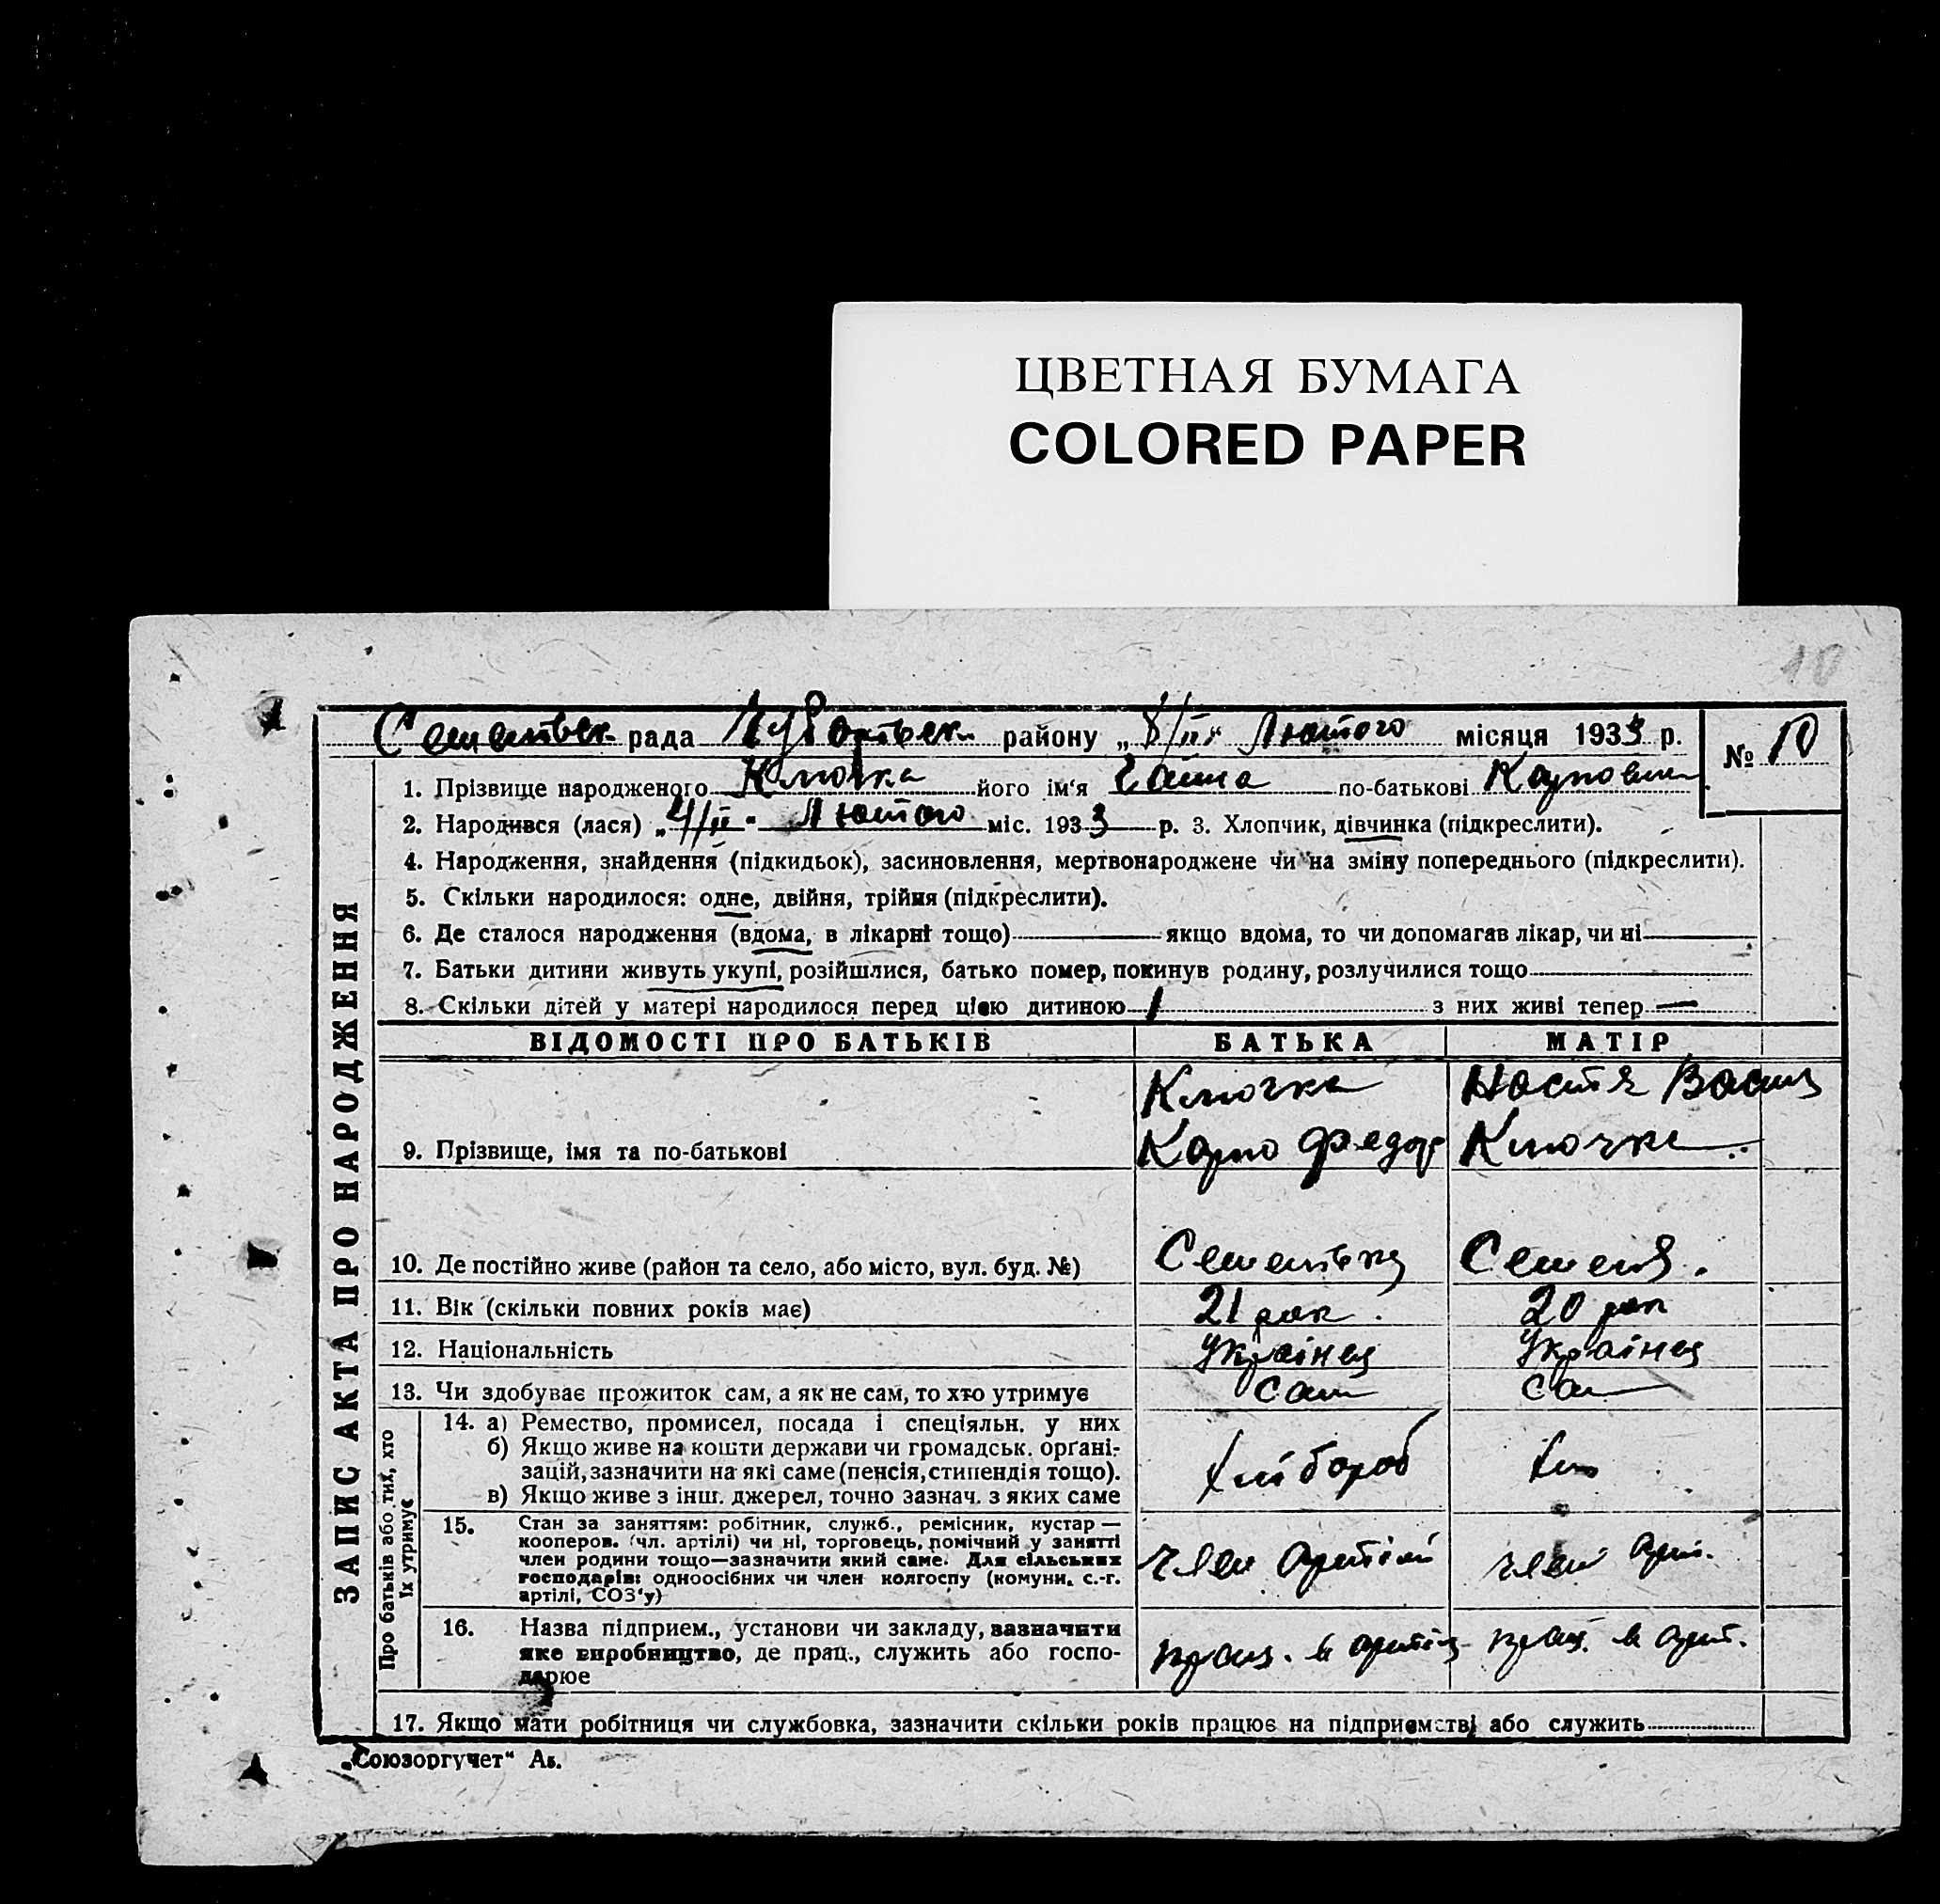 ЦВЕТНАЯ БУМАГА
COLORED PAPER
10
рада району „8/II" Лютого місяця 1933 р. № 10
ЗАПИС АКТА ПРО НАРОДЖЕННЯ
1. Прізвище народженого Ключка його ім'я по-батькові
2. Народився (лася) „4/II" Лютого міс. 1933 р. 3. Хлопчик, дівчинка (підкреслити).
4. Народження, знайдення (підкидьок), засиновлення, мертвонароджене чи на зміну попереднього (підкреслити).
5. Скільки народилося: одне, двійня, трійня (підкреслити).
6. Де сталося народження (вдома, в лікарні тощо) — якщо вдома, то чи допомагав лікар, чи ні —
7. Батьки дитини живуть укупі, розійшлися, батько помер, покинув родину, розлучилися тощо
8. Скільки дітей у матері народилося перед цією дитиною 1 з них живі тепер —
ВІДОМОСТІ ПРО БАТЬКІВ БАТЬКА МАТІР
Ключка Настя Васил
9. Прізвище, імя та по-батькові Карпо Федор Ключка
10. Де постійно живе (район та село, або місто, вул. буд. №) Семенівка
11. Вік (скільки повних років має) 21 рок. 20 рок
12. Національність Українец Українец
13. Чи здобуває прожиток сам, а як не сам, то хто утримує сам сам
Про батьків або тих, хто їх утримує
14. а) Ремество, промисел, посада і спеціяльн. у них
б) Якщо живе на кошти держави чи громадськ. орґані-
зацій, зазначити на які саме (пенсія, стипендія тощо). хлібороб хліб
в) Якщо живе з інш. джерел, точно зазнач. з яких саме
15. Стан за заняттям: робітник, служб., ремісник, кустар —
кооперов. (чл. артілі) чи ні, торговець, помічний у занятті
член родини тощо—зазначити який саме. Для сільських член артілі член арт.
господарів: одноосібних чи член колгоспу (комуни, с.-г.
артілі, СОЗ'у)
16. Назва підприєм., установи чи закладу, зазначити
яке виробництво, де прац., служить або госпо- прац. в артіл прац. в арт.
дарює
17. Якщо мати робітниця чи службовка, зазначити скільки років працює на підприємстві або служить
„Союзоргучет“